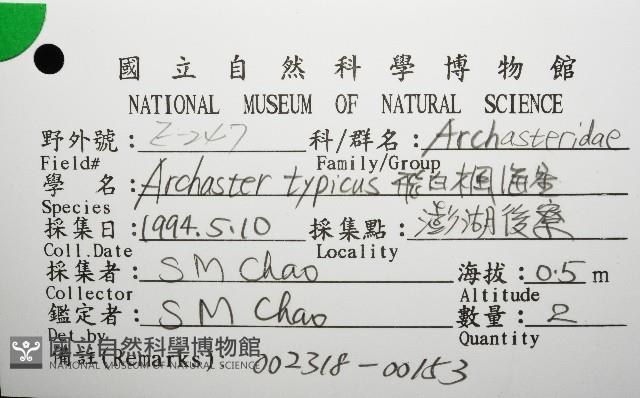 國立自然科學博物館
NATIONAL MUSEUM OF NATURAL SCIENCE
野外號：Z-247 科/群名：Archasteridae
Field# Family/Group
學 名：Archaster typicus 飛白楓海星
Species
採集日：1994.5.10 採集點：澎湖後寮
Coll.Date Locality
採集者：S M Chao 海拔：0.5 m
Collector Altitude
鑑定者：S M Chao 數量：2
Det.by Quantity
備註(Remarks)：002318-00153
國立自然科學博物館
NATIONAL MUSEUM OF NATURAL SCIENCE